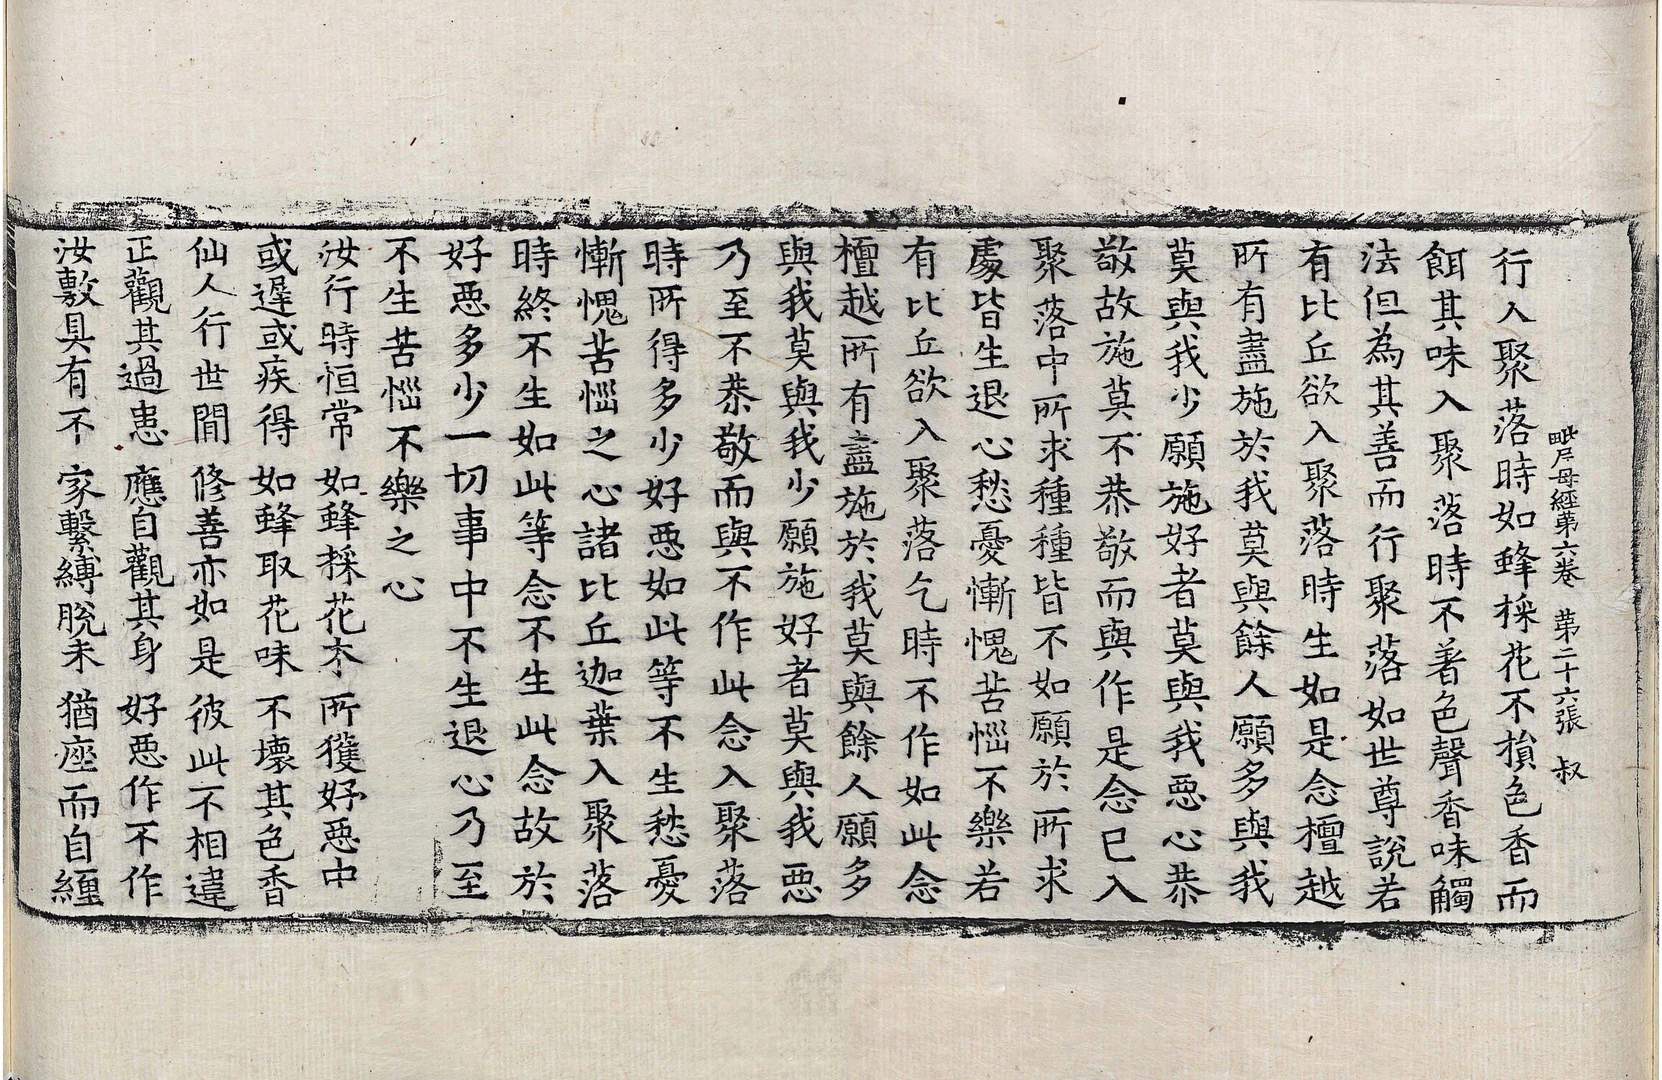 毗尼母經第六卷　第二十六張　叔
行入聚落時如蜂採花不損色香而
餌其味入聚落時不著色聲香味觸
法但為其善而行聚落如世尊說若
有比丘欲入聚落時生如是念檀越
所有盡施於我莫與餘人願多與我
莫與我少願施好者莫與我惡心恭
敬故施莫不恭敬而與作是念已入
聚落中所求種種皆不如願於所求
處皆生退心愁憂慚愧苦惱不樂若
有比丘欲入聚落乞時不作如此念
檀越所有盡施於我莫與餘人願多
與我莫與我少願施好者莫與我惡
乃至不恭敬而與不作此念入聚落
時所得多少好惡如此等不生愁憂
慚愧苦惱之心諸比丘迦葉入聚落
時終不生如此等念不生此念故於
好惡多少一切事中不生退心乃至
不生苦惱不樂之心
汝行時恒常　如蜂採花木　所獲好惡中
或遲或疾得　如蜂取花味　不壞其色香
仙人行世間　修善亦如是　彼此不相違
正觀其過患　應自觀其身　好惡作不作
汝敷具有不　家繫縛脫未　猶座而自纏